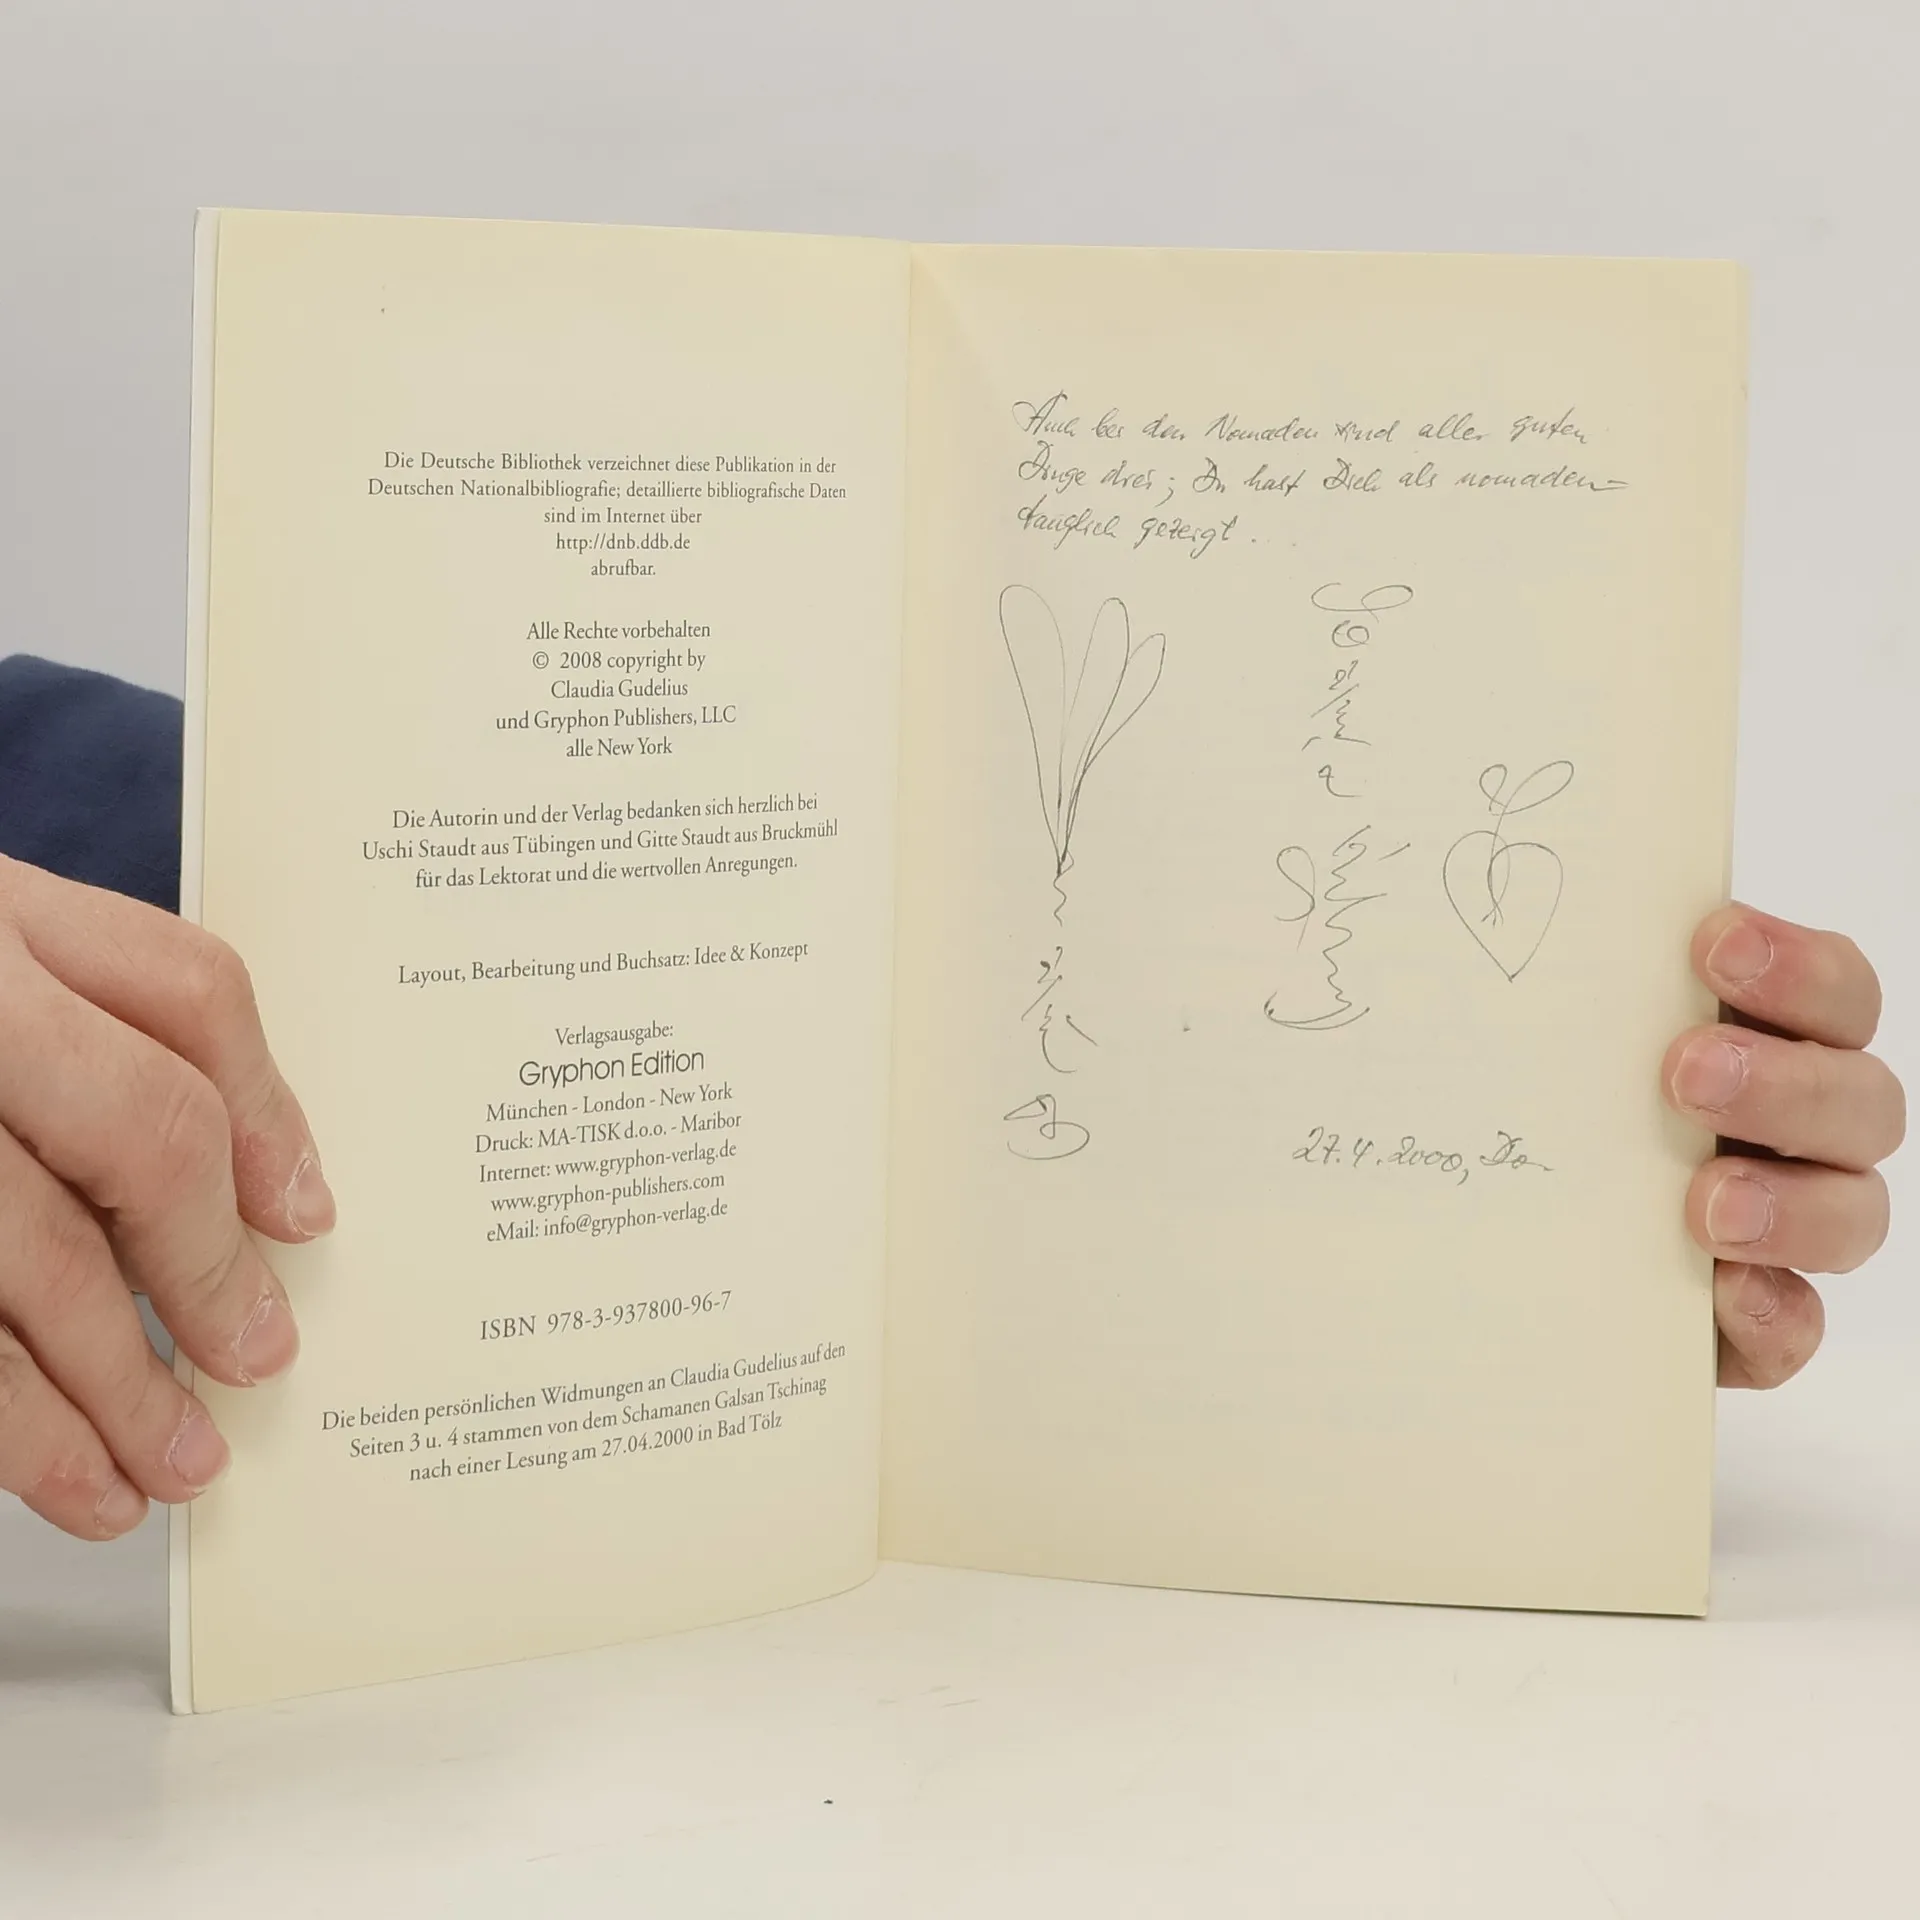 Die Deutsche Bibliothek verzeichnet diese Publikation in der
Deutschen Nationalbibliografie; detaillierte bibliografische Daten
sind im Internet über
http://dnb.ddb.de
abrufbar.
Alle Rechte vorbehalten
© 2008 copyright by
Claudia Gudelius
und Gryphon Publishers, LLC
alle New York
Die Autorin und der Verlag bedanken sich herzlich bei
Uschi Staudt aus Tübingen und Gitte Staudt aus Bruckmühl
für das Lektorat und die wertvollen Anregungen.
Layout, Bearbeitung und Buchsatz: Idee & Konzept
Verlagsausgabe:
Gryphon Edition
München - London - New York
Druck: MA-TISK d.o.o. - Maribor
Internet: www.gryphon-verlag.de
www.gryphon-publishers.com
eMail: info@gryphon-verlag.de
ISBN 978-3-937800-96-7
Die beiden persönlichen Widmungen an Claudia Gudelius auf den
Seiten 3 u. 4 stammen von dem Schamanen Galsan Tschinag
nach einer Lesung am 27.04.2000 in Bad Tölz
Auch bei den Nomaden sind aller guten
Dinge drei; Du hast Dich als nomaden-
tauglich gezeigt...
27.4.2000, Do